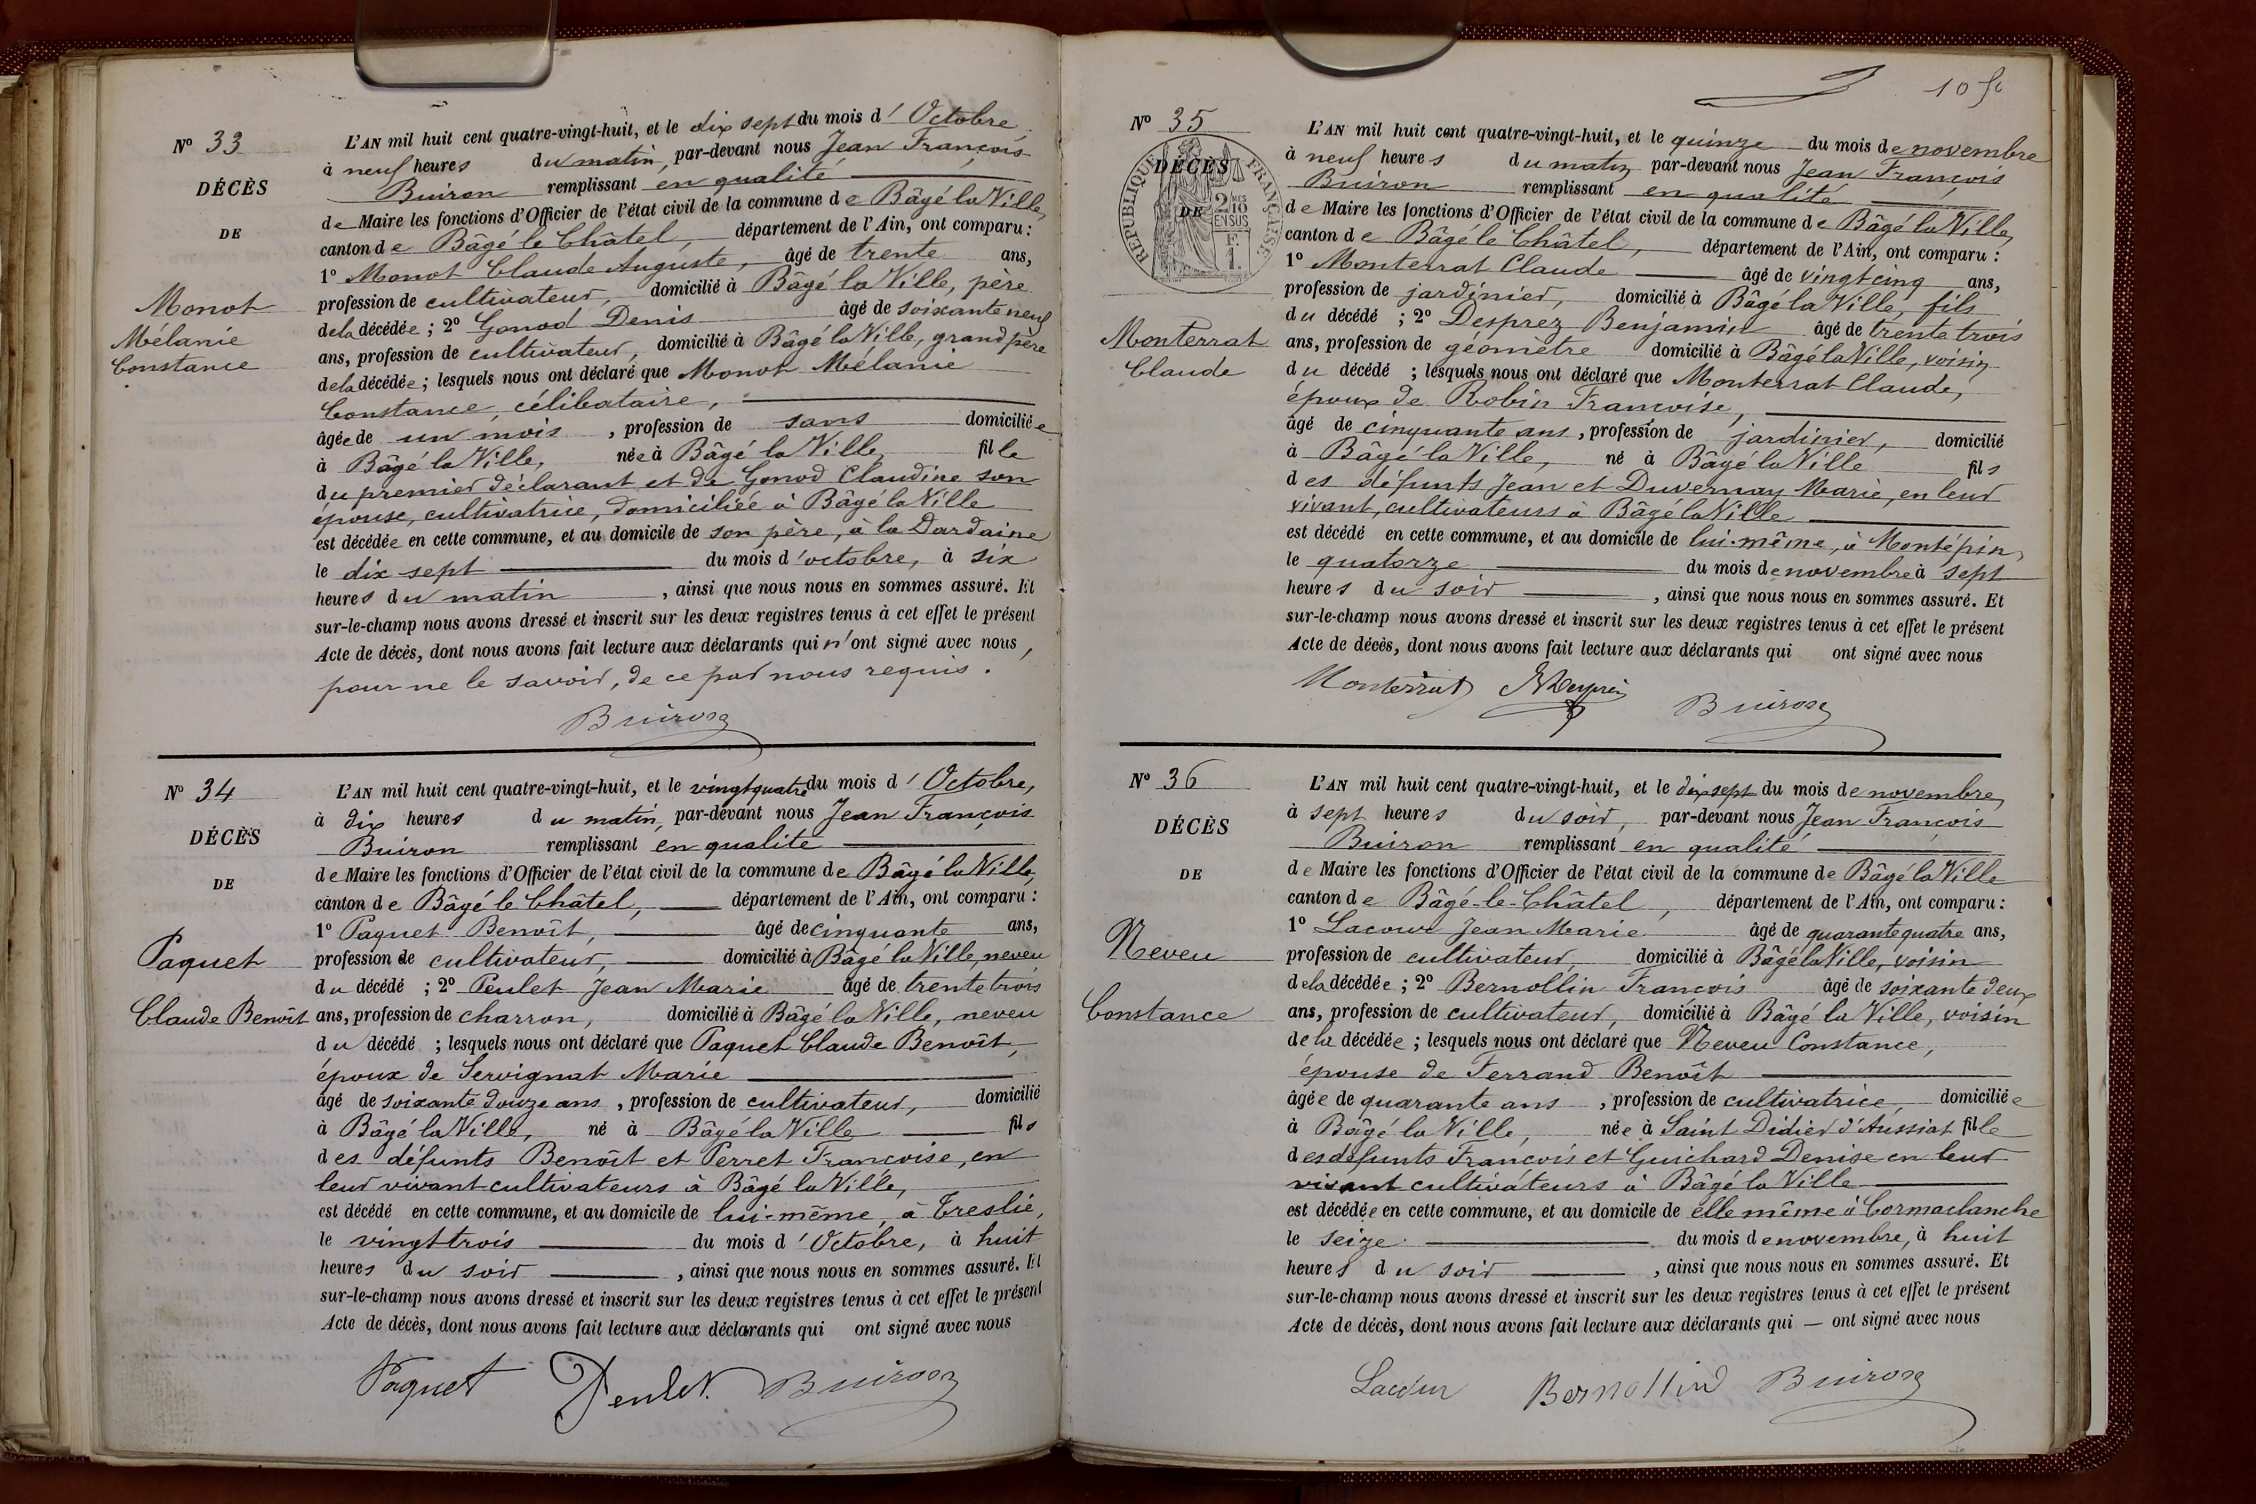 N° 33
DÉCÈS
DE
Monot
Mélanie
Constance
L'AN mil huit cent quatre-vingt-huit, et le dix sept du mois d'Octobre
à neuf heures du matin, par-devant nous Jean François
Buiron remplissant en qualité
de Maire les fonctions d'Officier de l'état civil de la commune de Bâgé la Ville,
canton de Bâgé le Châtel, département de l'Ain, ont comparu :
1° Monot Claude Auguste, âgé de trente ans,
profession de cultivateur, domicilié à Bâgé la Ville, père
de la décédée ; 2° Gonod Denis âgé de soixante neuf
ans, profession de cultivateur, domicilié à Bâgé la Ville, grand père
de la décédée ; lesquels nous ont déclaré que Monot Mélanie
Constance, célibataire,
âgée de un mois, profession de sans domiciliée
à Bâgé la Ville, née à Bâgé la Ville, fille
du premier déclarant et de Gonod Claudine son
épouse, cultivatrice, domiciliée à Bâgé la Ville
est décédée en cette commune, et au domicile de son père, à la Dardaine
le dix sept du mois d'octobre, à six
heures du matin, ainsi que nous nous en sommes assuré. Et
sur-le-champ nous avons dressé et inscrit sur les deux registres tenus à cet effet le présent
Acte de décès, dont nous avons fait lecture aux déclarants qui n'ont signé avec nous,
pour ne le savoir, de ce par nous requis.
Buiron
N° 34
DÉCÈS
DE
Paquet
Claude Benoît
L'AN mil huit cent quatre-vingt-huit, et le vingt quatre du mois d'Octobre,
à dix heures du matin, par-devant nous Jean François
Buiron remplissant en qualité
de Maire les fonctions d'Officier de l'état civil de la commune de Bâgé la Ville,
canton de Bâgé le Châtel, département de l'Ain, ont comparu :
1° Paquet Benoît, âgé de cinquante ans,
profession de cultivateur, domicilié à Bâgé la Ville, neveu
du décédé ; 2° Peulet Jean Marie âgé de trente trois
ans, profession de charron, domicilié à Bâgé la Ville, neveu
du décédé ; lesquels nous ont déclaré que Paquet Claude Benoît,
époux de Servignat Marie
âgé de soixante douze ans, profession de cultivateur, domicilié
à Bâgé la Ville, né à Bâgé la Ville fils
des défunts Benoît et Perret Françoise, en
leur vivant cultivateurs à Bâgé la Ville,
est décédé en cette commune, et au domicile de lui-même, à Treslie,
le vingt trois du mois d'Octobre, à huit
heures du soir, ainsi que nous nous en sommes assuré. Et
sur-le-champ nous avons dressé et inscrit sur les deux registres tenus à cet effet le présent
Acte de décès, dont nous avons fait lecture aux déclarants qui ont signé avec nous
Paquet Peulet Buiron
N° 35
DÉCÈS
DE
RÉPUBLIQUE FRANÇAISE
2 10MES EN SUS
F. 1.
Monterrat
Claude
L'AN mil huit cent quatre-vingt-huit, et le quinze du mois de novembre
à neuf heures du matin par-devant nous Jean François
Buiron remplissant en qualité
de Maire les fonctions d'Officier de l'état civil de la commune de Bâgé la Ville,
canton de Bâgé le Châtel, département de l'Ain, ont comparu :
1° Monterrat Claude âgé de vingt cinq ans,
profession de jardinier, domicilié à Bâgé la Ville, fils
du décédé ; 2° Desprez Benjamin âgé de trente trois
ans, profession de géomètre domicilié à Bâgé la Ville, voisin
du décédé ; lesquels nous ont déclaré que Monterrat Claude,
époux de Robin Françoise,
âgé de cinquante ans, profession de jardinier, domicilié
à Bâgé la Ville, né à Bâgé la Ville fils
des défunts Jean et Duvernay Marie, en leur
vivant, cultivateurs à Bâgé la Ville
est décédé en cette commune, et au domicile de lui-même, à Montépin,
le quatorze du mois de novembre à sept
heures du soir, ainsi que nous nous en sommes assuré. Et
sur-le-champ nous avons dressé et inscrit sur les deux registres tenus à cet effet le présent
Acte de décès, dont nous avons fait lecture aux déclarants qui ont signé avec nous
Monterrat Desprez Buiron
N° 36
DÉCÈS
DE
Neveu
Constance
L'AN mil huit cent quatre-vingt-huit, et le dix sept du mois de novembre,
à sept heures du soir, par-devant nous Jean François
Buiron remplissant en qualité
de Maire les fonctions d'Officier de l'état civil de la commune de Bâgé la Ville
canton de Bâgé-le-Châtel, département de l'Ain, ont comparu :
1° Lacour Jean Marie âgé de quarante quatre ans,
profession de cultivateur, domicilié à Bâgé la Ville, voisin
de la décédée ; 2° Bernollin François âgé de soixante deux
ans, profession de cultivateur, domicilié à Bâgé la Ville, voisin
de la décédée ; lesquels nous ont déclaré que Neveu Constance,
épouse de Ferrand Benoît
âgée de quarante ans, profession de cultivatrice, domiciliée
à Bâgé la Ville, née à Saint Didier d'Aussiat fille
des défunts François et Guichard Denise en leur
vivant cultivateurs à Bâgé la Ville
est décédée en cette commune, et au domicile de elle même à Cormaclanche
le seize du mois de novembre, à huit
heures du soir, ainsi que nous nous en sommes assuré. Et
sur-le-champ nous avons dressé et inscrit sur les deux registres tenus à cet effet le présent
Acte de décès, dont nous avons fait lecture aux déclarants qui — ont signé avec nous
Lacour Bernollin Buiron